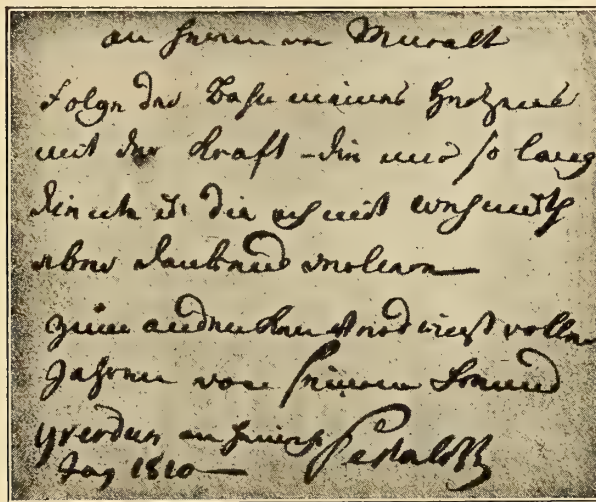 an Herrn von Muralt
Folge der Bahn meines Herzens
mit der Kraft – die mir so lang
diente u: die ich mit wehmuth
aber dankend verliere —
zum andenken verdienst voller
Jahren von seinem Freund
Yverdun am heinrichs Pestalozzi
Tag 1810 —